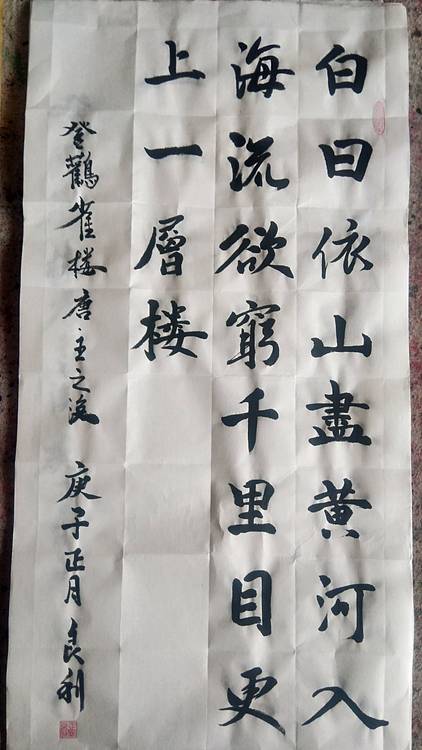 白日依山盡黄河入
海流欲窮千里目更
上一層楼
登鸛雀楼唐王之渙 庚子正月良利